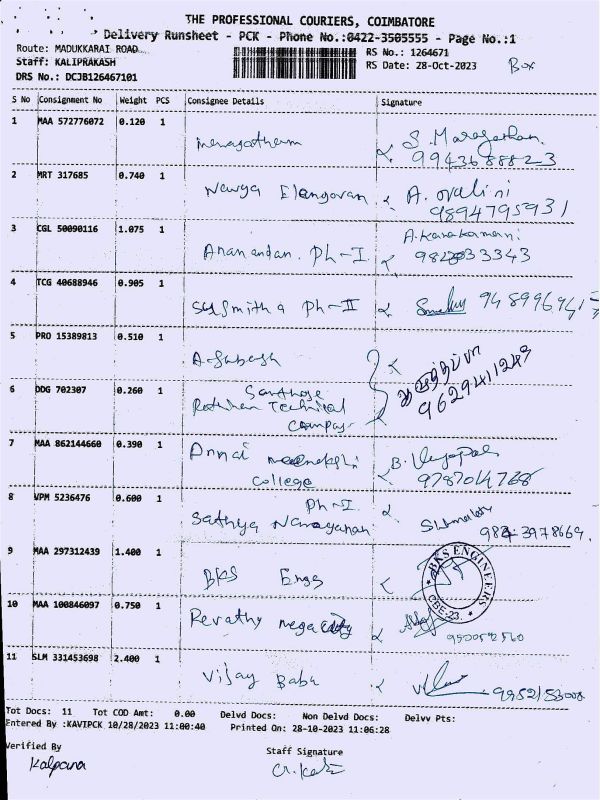 THE PROFESSIONAL COURIERS, COIMBATORE
Delivery Runsheet - PCK - Phone No.:0422-3505555 - Page No.:1
Route: MADUKKARAI ROAD RS No.: 1264671
Staff: KALIPRAKASH RS Date: 28-Oct-2023 Box
DRS No.: DCJB126467101
S No Consignment No Weight PCS Consignee Details Signature
1 MAA 572776072 0.120 1
9943688823
2 MRT 317685 0.740 1 Navya Elangovan A. ovalini
9894795931
3 CGL 50090116 1.075 1 Anandan. Ph-I
4 TCG 40688946 0.905 1 Ph-II
5 PRO 15389813 0.510 1 A. Subash
9629411249
6 DDG 702307 0.260 1 Santhose
Technical
Campas
7 MAA 862144660 0.390 1 Annai meenakshi B. Venugopal
College 9787014768
8 VPM 5236476 0.600 1 Ph-I
Sathya Narayanan
9 MAA 297312439 1.400 1 BKS Engg BKS ENGINEERS CBE-23.
10 MAA 100846097 0.750 1 Revathy megacity
11 SLM 331453698 2.400 1 Vijay Babu
Tot Docs: 11 Tot COD Amt: 0.00 Delvd Docs: Non Delvd Docs: Delvv Pts:
Entered By :KAVIPCK 10/28/2023 11:00:40 Printed On: 28-10-2023 11:06:28
Verified By Staff Signature
Kalpana